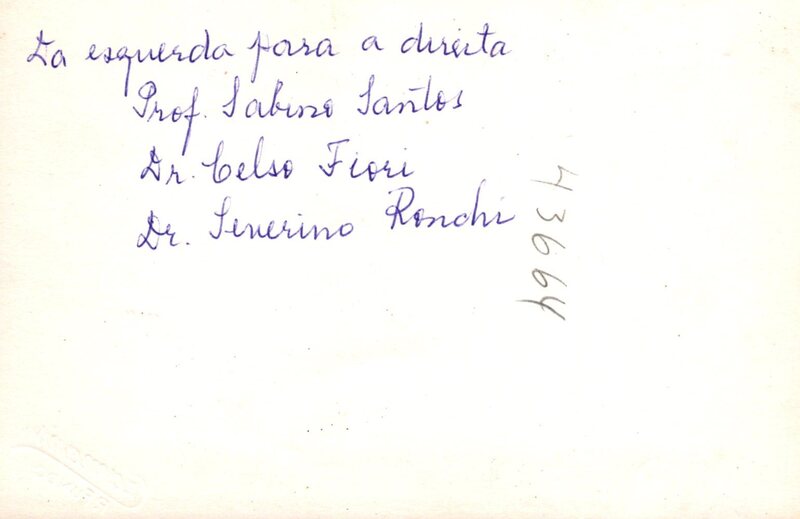 Da esquerda para a direita
Prof. Sabino Santos
Dr. Celso Fiori
Dr. Severino Ronchi
43664